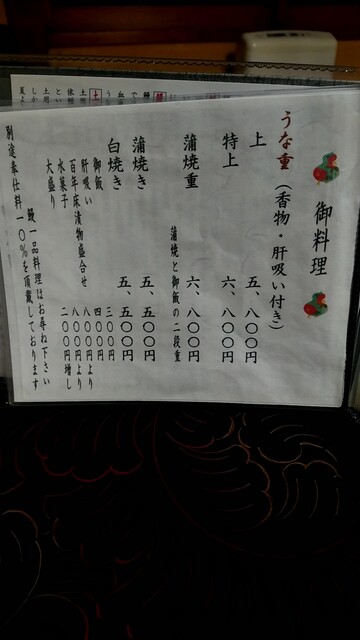 御料理
うな重(香物・肝吸い付き)
上 五、八〇〇円
特上 六、八〇〇円
蒲焼重 六、八〇〇円
蒲焼と御飯の二段重
蒲焼き 五、五〇〇円
白焼き 五、五〇〇円
御飯 三〇〇円
肝吸い 四〇〇円
百年床漬物盛合せ 八〇〇円より
水菓子 八〇〇円より
大盛り 二〇〇円増し
鰻一品料理はお尋ね下さい
別途奉仕料一〇%を頂戴しております